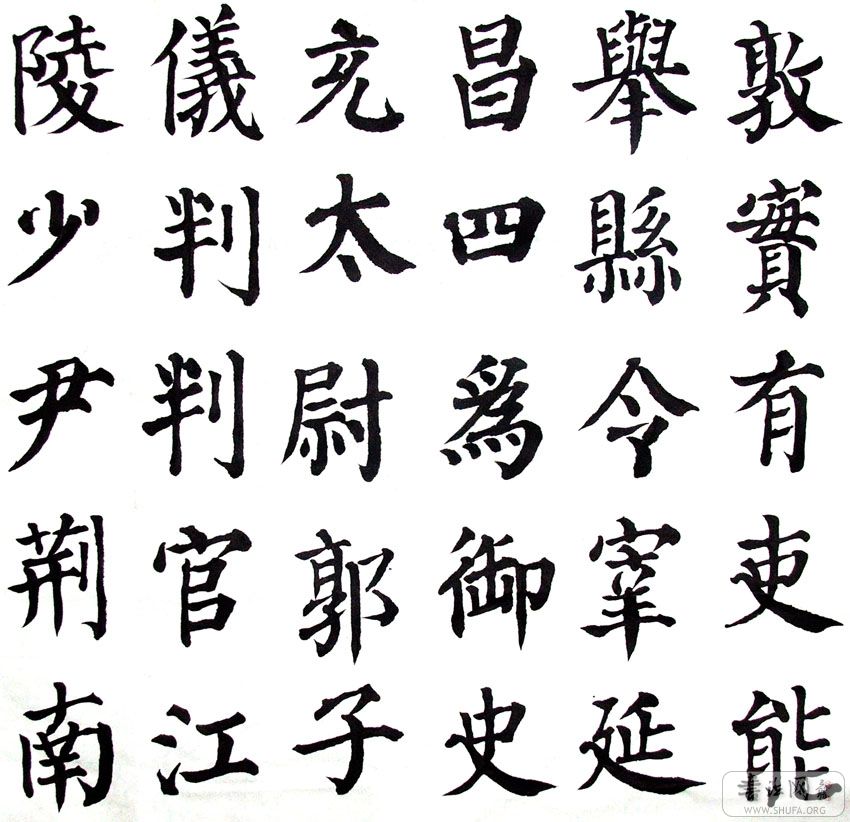 敦實有吏能
舉縣令宰延
昌四爲御史
充太尉郭子
儀判判官江
陵少尹荊南
WWW.SHUFA.ORG